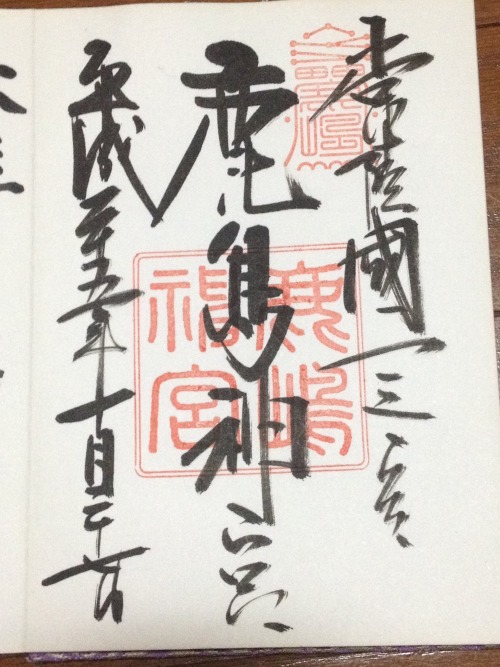 常陸國一之宮
鹿島神宮
平成二十五年十月二十七日
鹿嶋
神宮